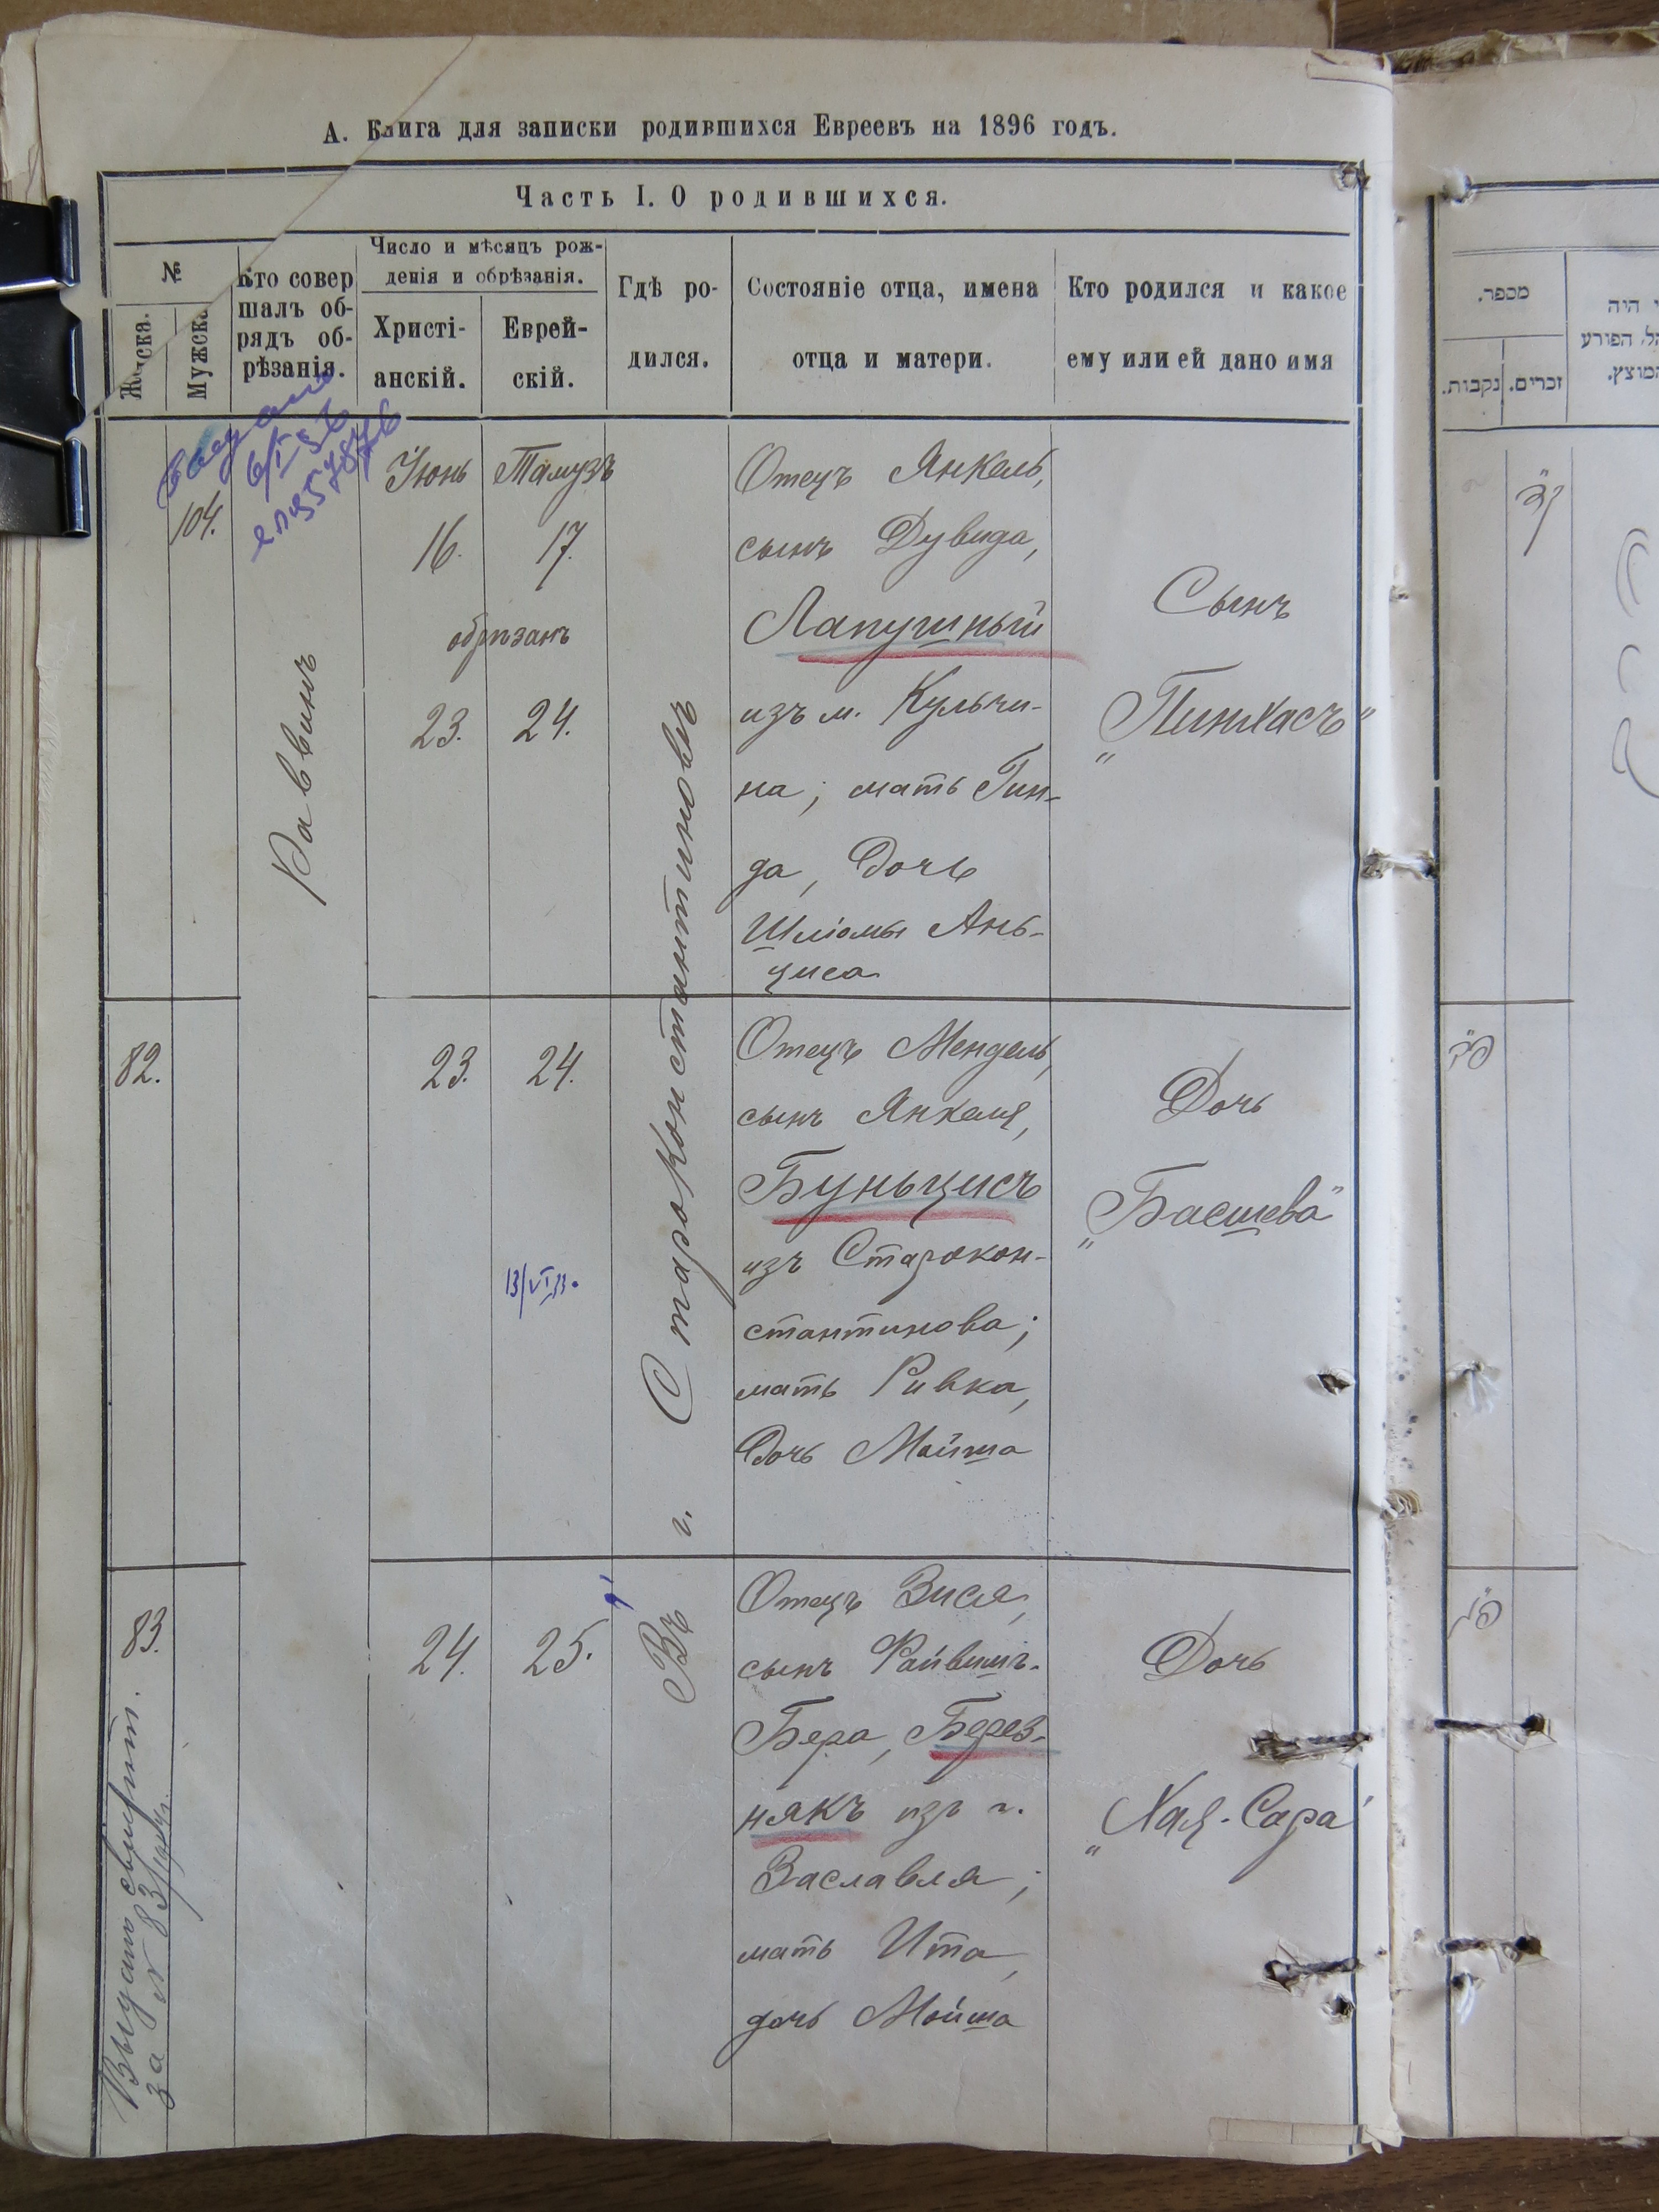 А. Книга для записки родившихся Евреевъ на 1896 годъ.
Часть I. О родившихся.
№
Женска.
Мужска
Кто совер
шалъ об-
рядъ об-
рѣзанія.
Число и мѣсяцъ рож-
денія и обрѣзанія.
Христі-
анскій.
Еврей-
скій.
Гдѣ ро-
дился.
Состояніе отца, имена
отца и матери.
Кто родился и какое
ему или ей дано имя
104.
Раввинъ
Іюнь
16.
Тамузъ
17.
обрѣзанъ
23.
24.
Въ г. Староконстантиновъ
Отецъ Янкель,
сынъ Дувида,
Лапушный
изъ м. Кульчи-
на; мать Гин-
да, дочь
Шліомы Ань-
циса
Сынъ
„Пинхасъ"
82.
23.
24.
13/VI 33.
Отецъ Мендель,
сынъ Янкеля,
Буньцисъ
изъ Старокон-
стантинова;
мать Ривка,
дочь Мойша
Дочь
„Басшева"
83.
Выдано свидѣт.
за № 83
24.
25.
Отецъ Зися,
сынъ Файвишъ-
Бера, Берез-
някъ изъ г.
Заславля;
мать Ита,
дочь Мойша
Дочь
„Хая-Сара"
מספר.
נקבות.
זכרים.
י היה
הל, הפורע
המוצץ.
ק"ד
פ"ב
פ"ג